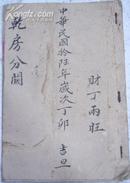 財丁兩旺
中華民國拾陸年歲次丁卯 吉旦
乾房分關